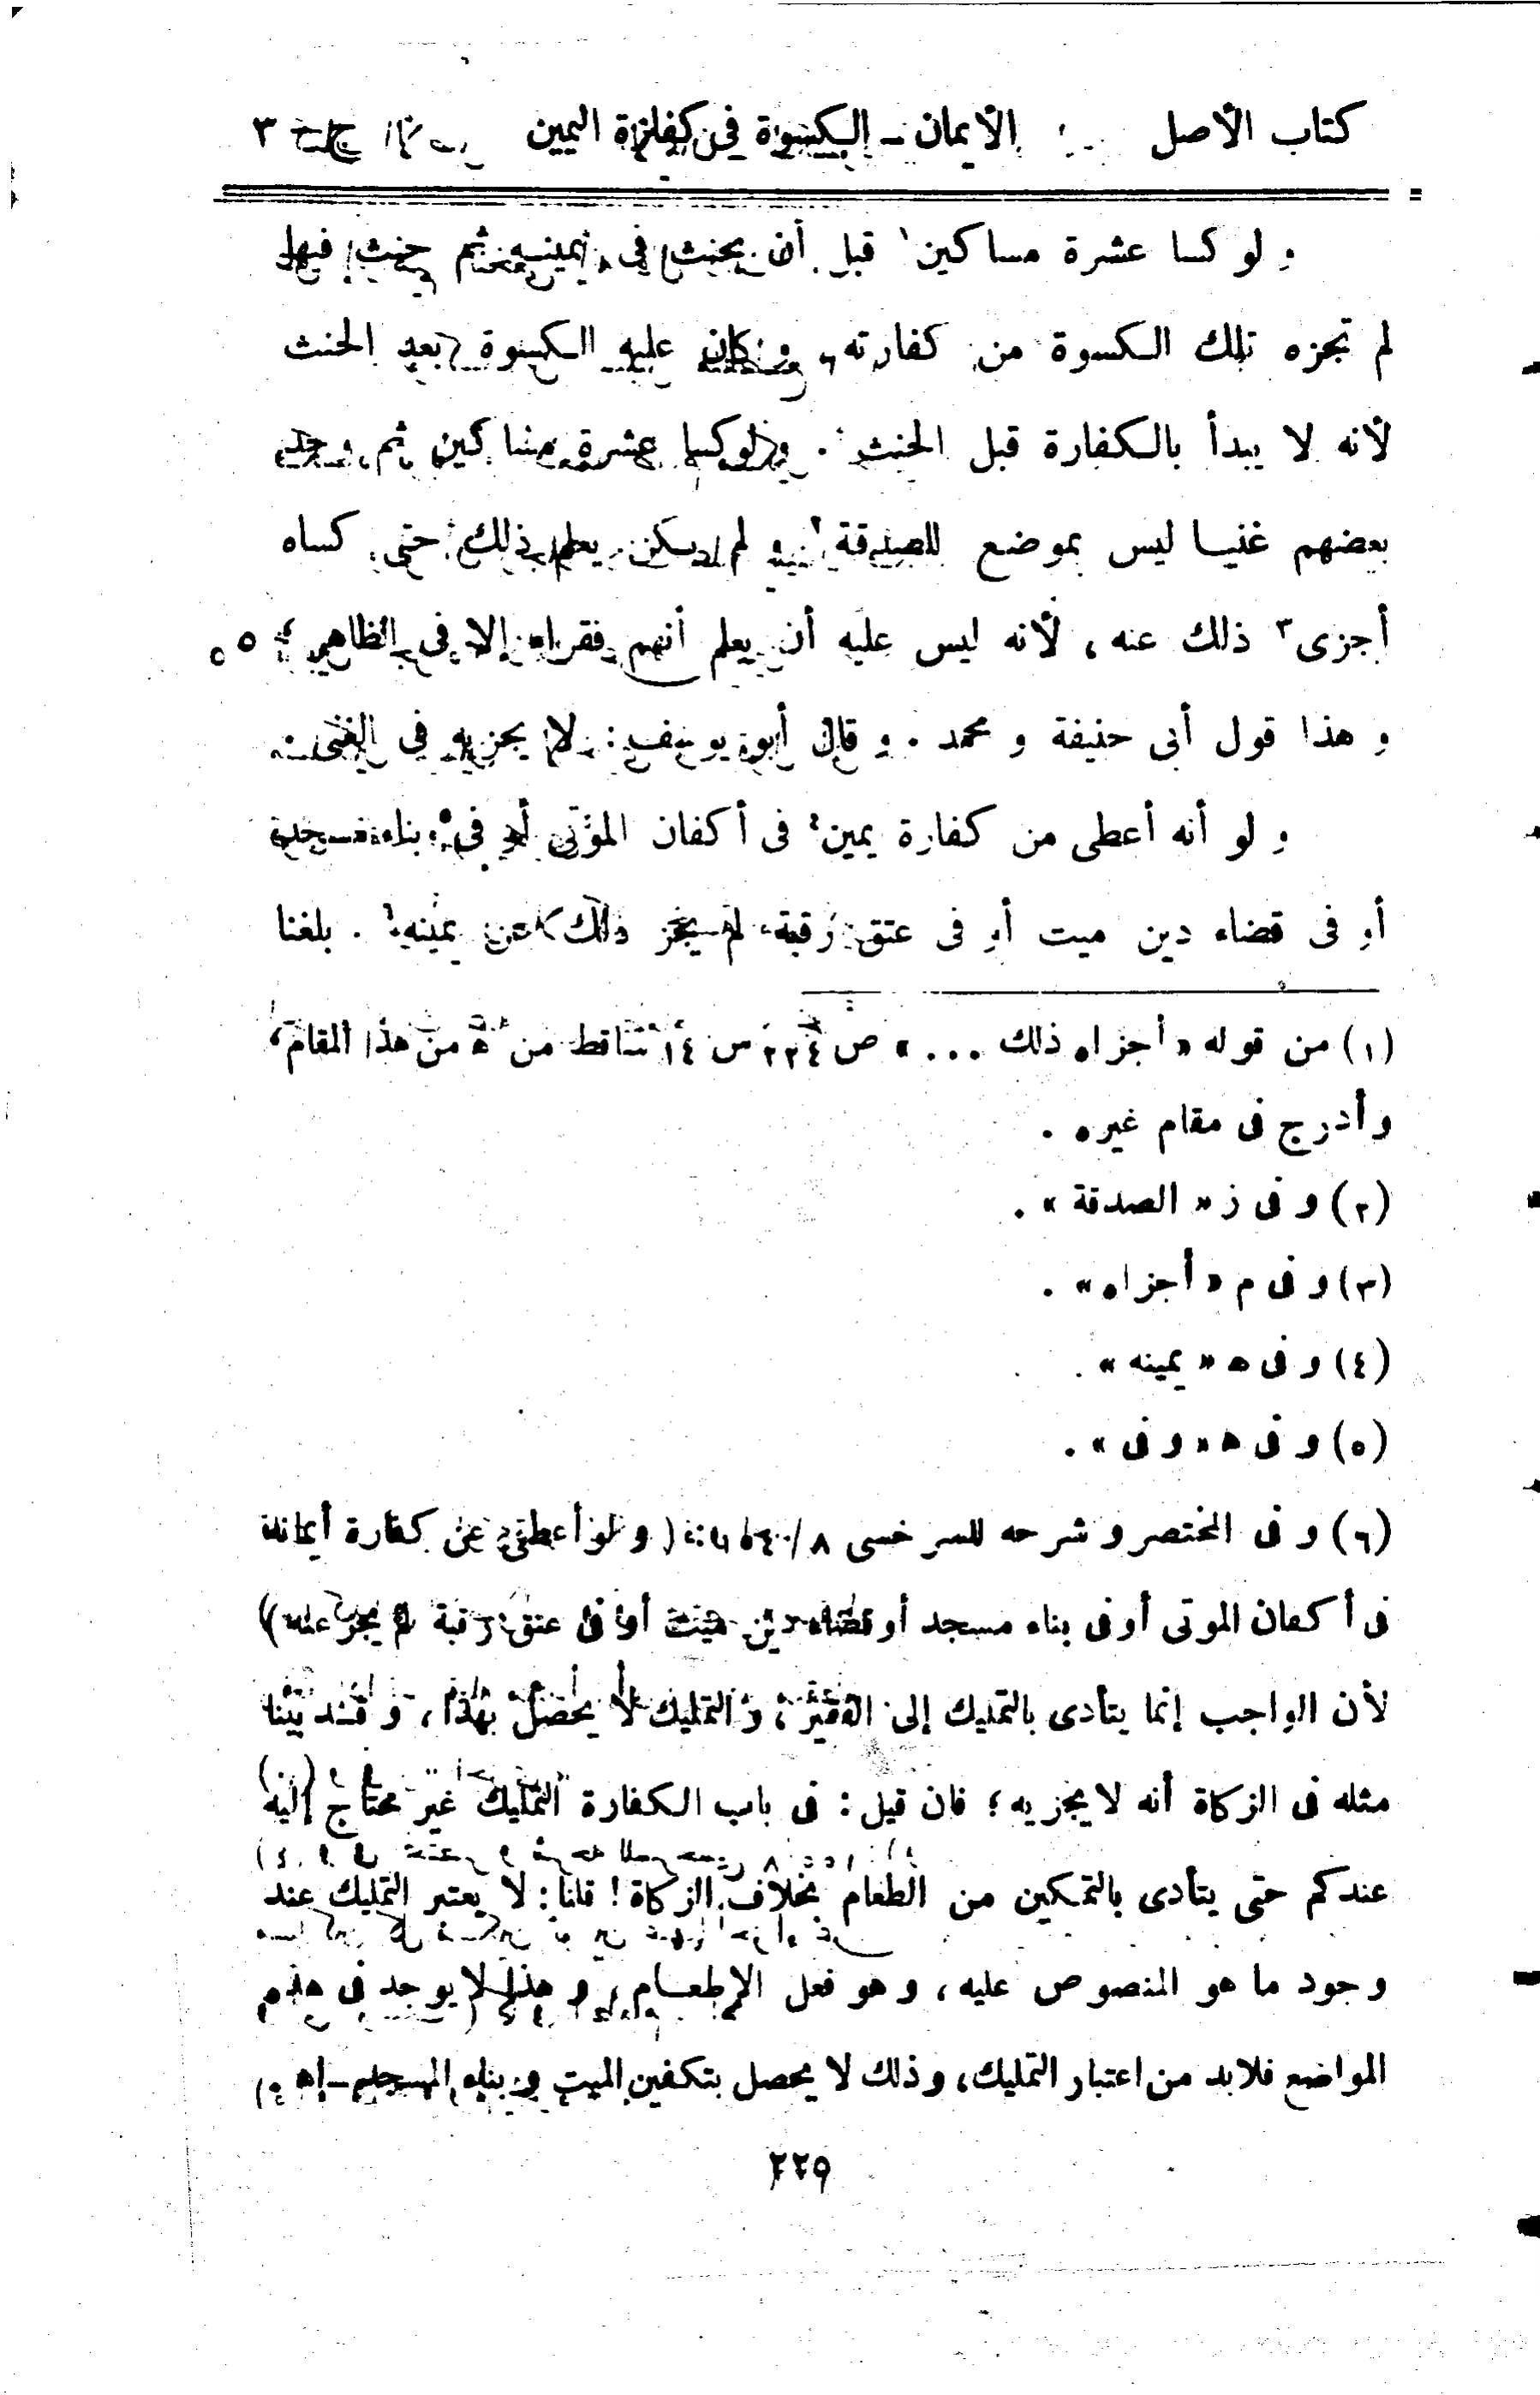 كتاب الأصل الأيمان - الكسوة في كفارة اليمين ج - ٣
و لو كسا عشرة مساكين١ قبل أن يحنث فى يمينه ثم حنث فيها
لم تجزه تلك الكسوة من كفارته، و كان عليه الكسوة بعد الحنث
لأنه لا يبدأ بالكفارة قبل الحنث . و لو كسا عشرة مساكين ثم وجد
بعضهم غنيا ليس بموضع للصدقة٢ و لم يكن يعلم ذلك حتى كساه
أجزى٣ ذلك عنه، لأنه ليس عليه أن يعلم أنهم فقراء إلا فى الظاهر ؛ ٥
و هذا قول أبى حنيفة و محمد . و قال أبو يوسف : لا يجزيه فى الغنى .
و لو أنه أعطى من كفارة يمين٤ فى أكفان الموتى أو فى٥ بناء مسجد
أو فى قضاء دين ميت أو فى عتق رقبة لم يجز ذلك عن يمينه٦ . بلغنا
(١) من قوله « أجزاه ذلك ... » ص ٢٢٤ س ١٤ ساقط من ه من هذا المقام،
وأدرج فى مقام غيره .
(٢) و فى ز « الصدقة » .
(٣) و فى م « أجزاه » .
(٤) و فى ه « يمينه » .
(٥) و فى ه « و فى » .
(٦) و فى المختصر و شرحه للسرخسى ٨/ : ( و لو أعطى عن كفارة أيمانه
فى أكفان الموتى أو فى بناء مسجد أو قضاء دين ميت أو فى عتق رقبة لم يجز عنه )
لأن الواجب إنما يتأدى بالتمليك إلى الفقير، و التمليك لا يحصل بهذا، و قد بينا
مثله فى الزكاة أنه لا يجزيه ؛ فان قيل : فى باب الكفارة التمليك غير محتاج إليه
عندكم حتى يتأدى بالتمكين من الطعام بخلاف الزكاة ! قلنا : لا يعتبر التمليك عند
وجود ما هو المنصوص عليه، و هو فعل الإطعام، و هذا لا يوجد فى هذه
المواضع فلا بد من اعتبار التمليك، و ذلك لا يحصل بتكفين الميت و بناء المسجد - اه .
٢٢٥